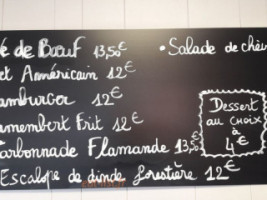 de Bœuf 13,50€
et Américain 12€
amburger 12€
amembert Frit 12€
arbonnade Flamande 13,5€
Escalope de dinde forestière 12€
• Salade de chèv
Dessert
AU CHOIX
à
4€